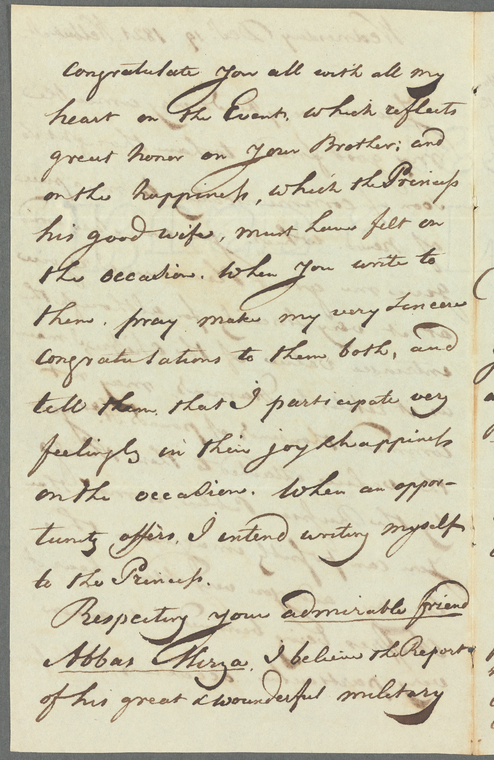 congratulate you all with all my
heart on the Event, which reflects
great honor on your Brother; and
on the happiness, which the Princess
his good wife, must have felt on
the occasion. When you write to
them, pray make my very sincere
congratulations to them both, and
tell them, that I participate very
feelingly in their joy & happiness
on the occasion. When an oppor-
tunity offers, I intend writing myself
to the Princess.
Respecting your admirable friend
Abbas Mirza, I believe the Reports
of his great & wounderful military